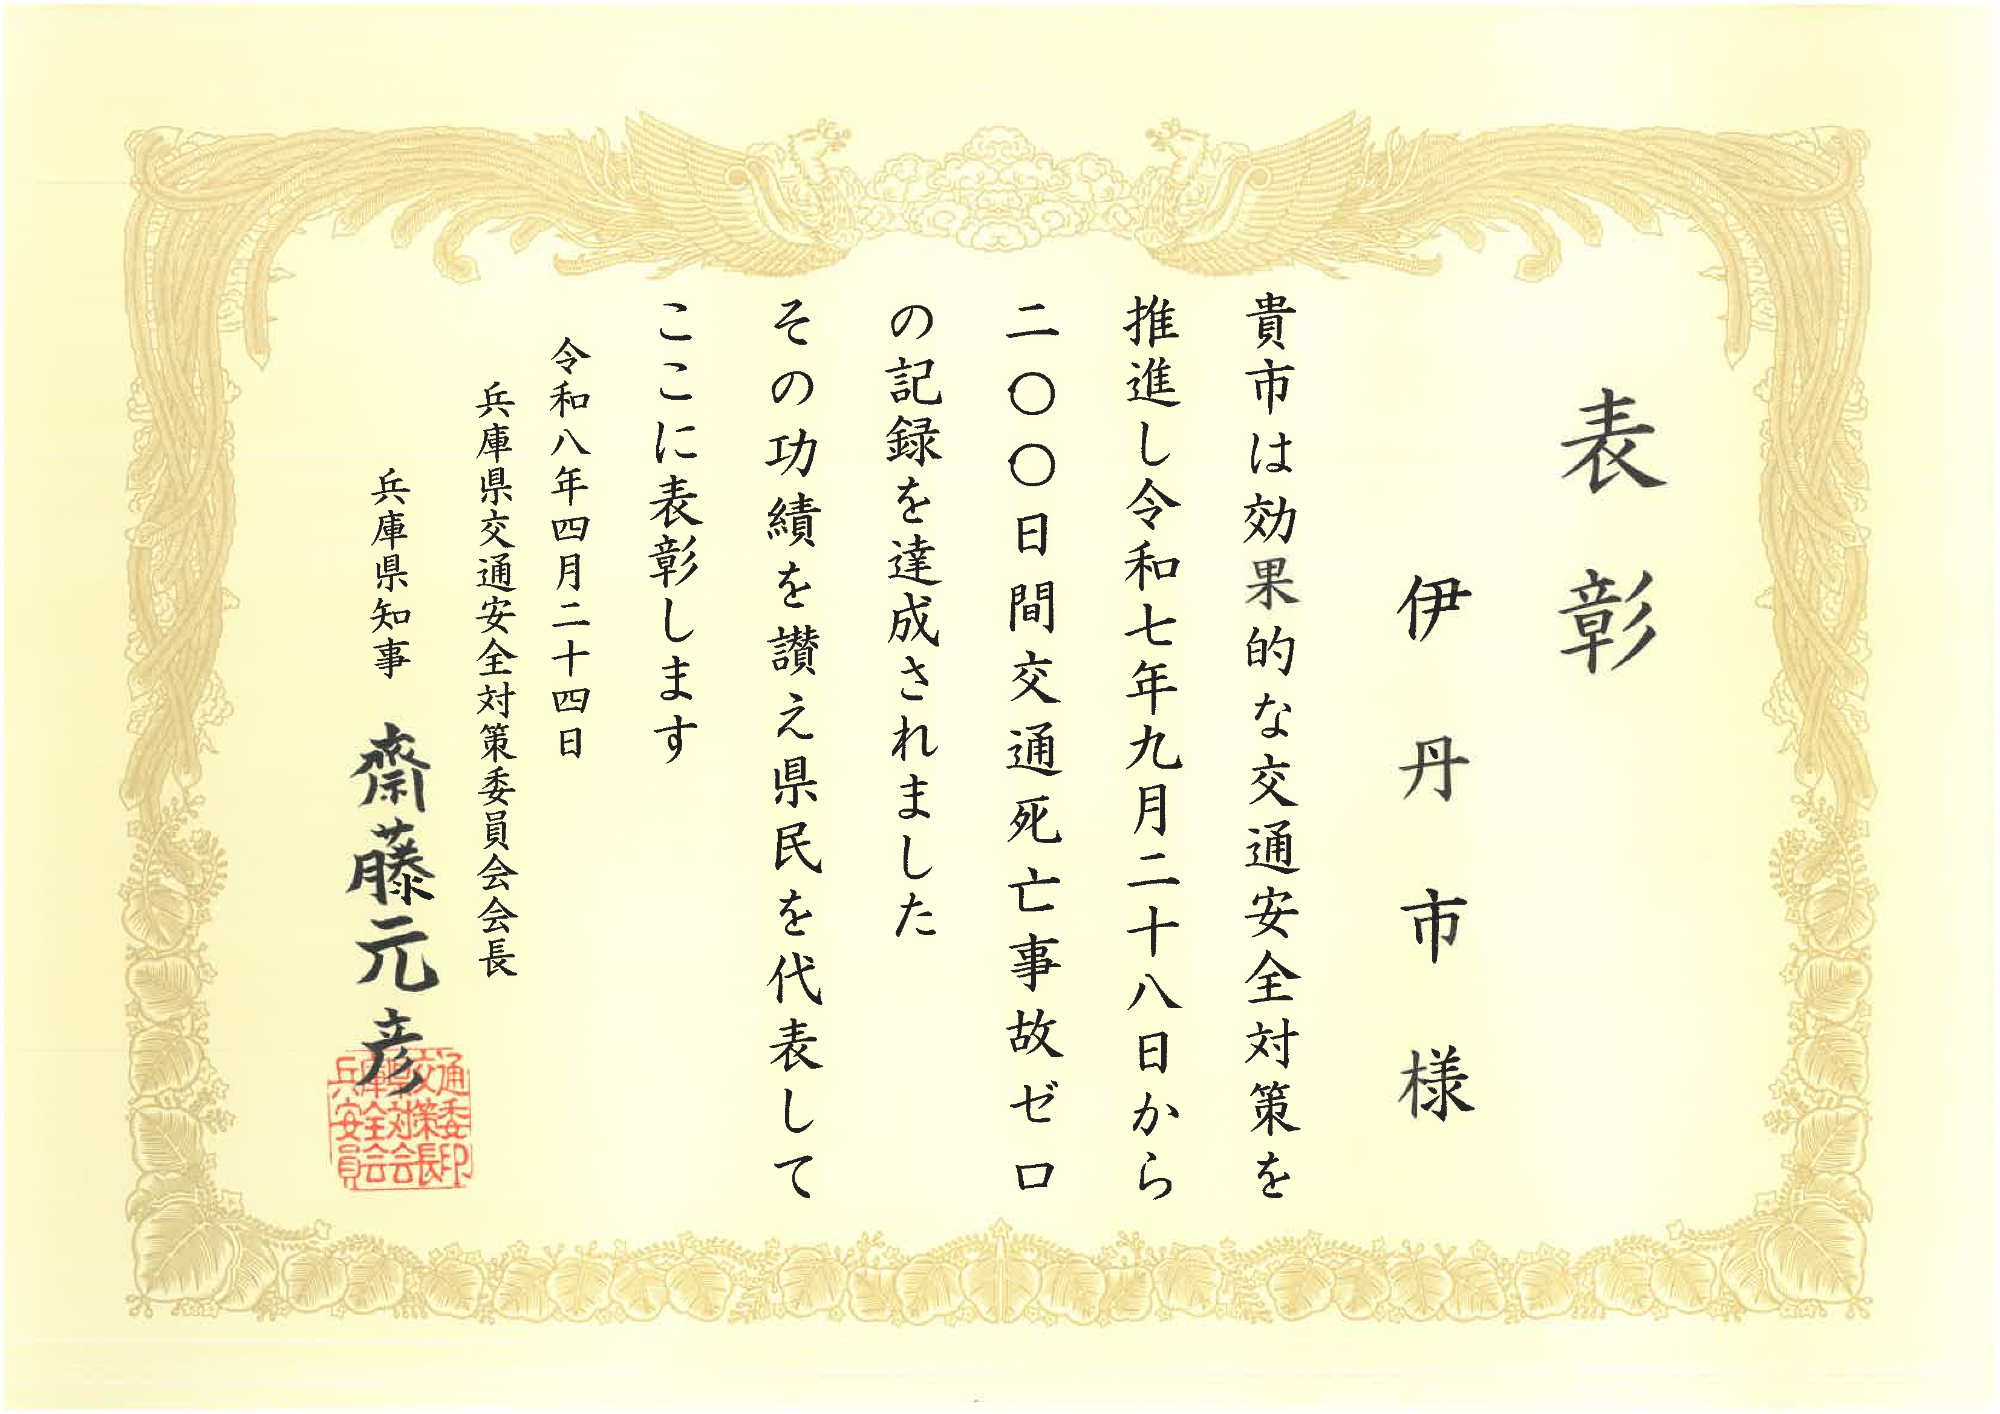 表彰
伊丹市様
貴市は効果的な交通安全対策を
推進し令和七年九月二十八日から
二〇〇日間交通死亡事故ゼロ
の記録を達成されました
その功績を讃え県民を代表して
ここに表彰します
令和八年四月二十四日
兵庫県交通安全対策委員会会長
兵庫県知事 齋藤元彦
兵庫県交通
安全対策委
員会会長印